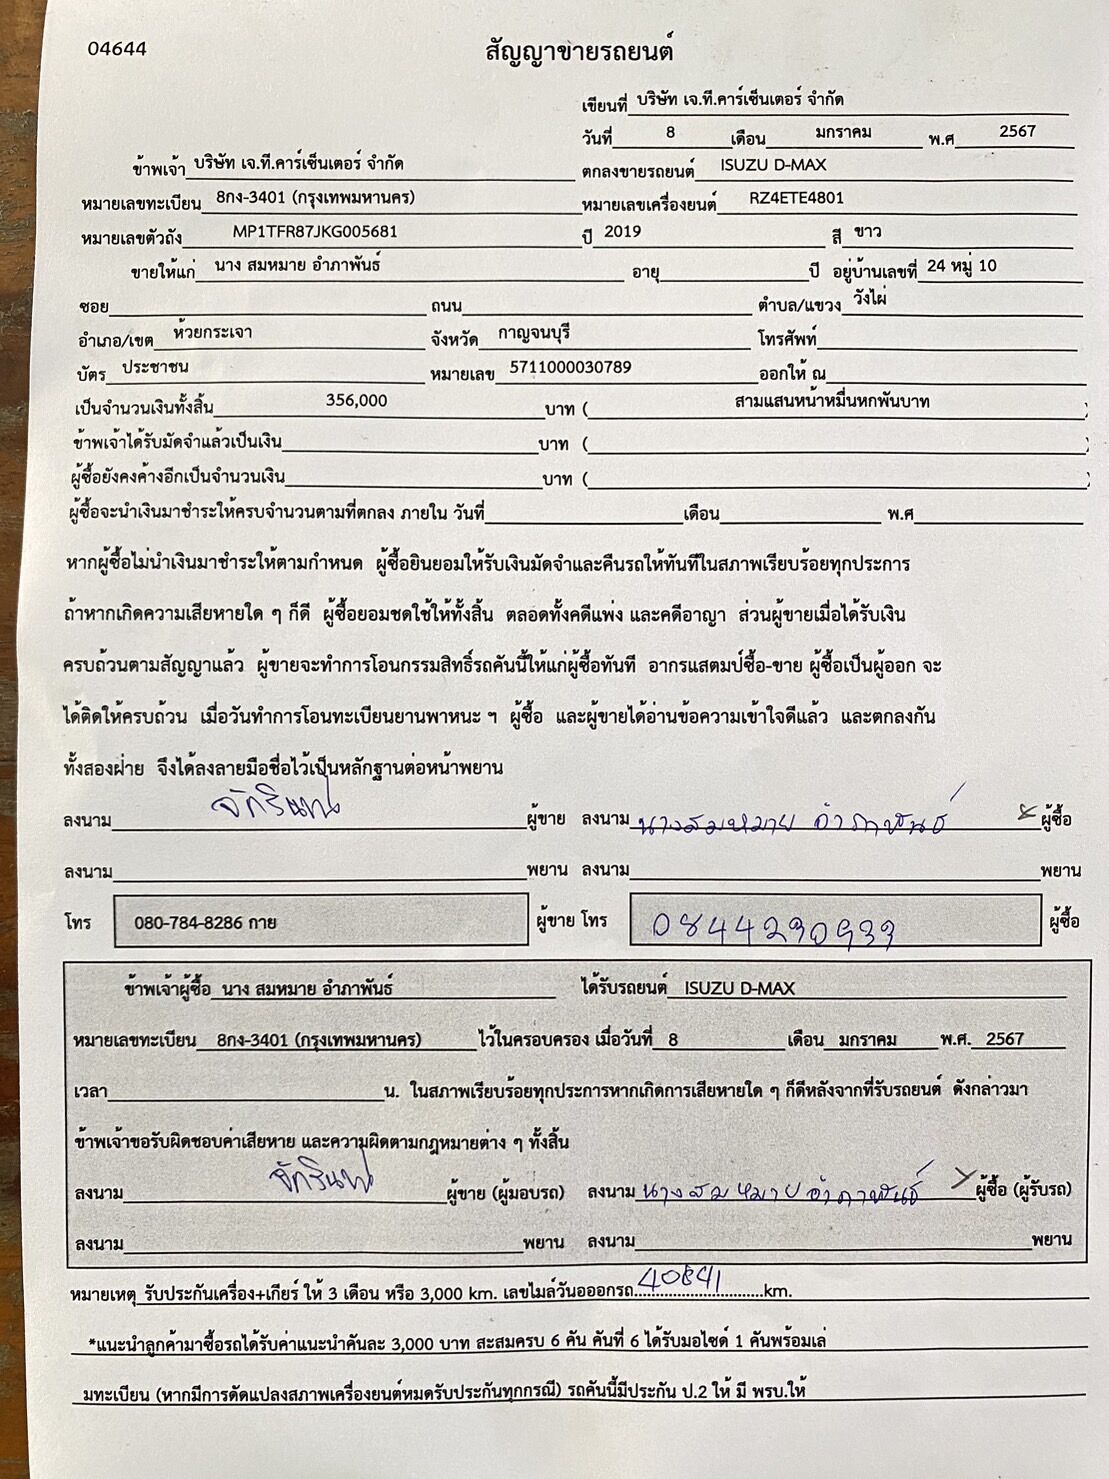 04644
สัญญาขายรถยนต์
เขียนที่ บริษัท เจ.ที.คาร์เซ็นเตอร์ จำกัด
วันที่ 8 เดือน มกราคม พ.ศ 2567
ข้าพเจ้า บริษัท เจ.ที.คาร์เซ็นเตอร์ จำกัด ตกลงขายรถยนต์ ISUZU D-MAX
หมายเลขทะเบียน 8กง-3401 (กรุงเทพมหานคร) หมายเลขเครื่องยนต์ RZ4ETE4801
หมายเลขตัวถัง MP1TFR87JKG005681 ปี 2019 สี ขาว
ขายให้แก่ นาง สมหมาย อำภาพันธ์ อายุ ปี อยู่บ้านเลขที่ 24 หมู่ 10
ซอย ถนน ตำบล/แขวง วังไผ่
อำเภอ/เขต ห้วยกระเจา จังหวัด กาญจนบุรี โทรศัพท์
บัตร ประชาชน หมายเลข 5711000030789 ออกให้ ณ
เป็นจำนวนเงินทั้งสิ้น 356,000 บาท ( สามแสนหน้าหมื่นหกพันบาท )
ข้าพเจ้าได้รับมัดจำแล้วเป็นเงิน บาท ( )
ผู้ซื้อยังคงค้างอีกเป็นจำนวนเงิน บาท ( )
ผู้ซื้อจะนำเงินมาชำระให้ครบจำนวนตามที่ตกลง ภายใน วันที่ เดือน พ.ศ
หากผู้ซื้อไม่นำเงินมาชำระให้ตามกำหนด ผู้ซื้อยินยอมให้รับเงินมัดจำและคืนรถให้ทันทีในสภาพเรียบร้อยทุกประการ
ถ้าหากเกิดความเสียหายใด ๆ ก็ดี ผู้ซื้อยอมชดใช้ให้ทั้งสิ้น ตลอดทั้งคดีแพ่ง และคดีอาญา ส่วนผู้ขายเมื่อได้รับเงิน
ครบถ้วนตามสัญญาแล้ว ผู้ขายจะทำการโอนกรรมสิทธิ์รถคันนี้ให้แก่ผู้ซื้อทันที อากรแสตมป์ซื้อ-ขาย ผู้ซื้อเป็นผู้ออก จะ
ได้ติดให้ครบถ้วน เมื่อวันทำการโอนทะเบียนยานพาหนะ ฯ ผู้ซื้อ และผู้ขายได้อ่านข้อความเข้าใจดีแล้ว และตกลงกัน
ทั้งสองฝ่าย จึงได้ลงลายมือชื่อไว้เป็นหลักฐานต่อหน้าพยาน
ลงนาม จักรินทน์ ผู้ขาย ลงนาม นางสมหมาย อำภาพันธ์ ผู้ซื้อ
ลงนาม พยาน ลงนาม พยาน
โทร 080-784-8286 กาย ผู้ขาย โทร 0844230933 ผู้ซื้อ
ข้าพเจ้าผู้ซื้อ นาง สมหมาย อำภาพันธ์ ได้รับรถยนต์ ISUZU D-MAX
หมายเลขทะเบียน 8กง-3401 (กรุงเทพมหานคร) ไว้ในครอบครอง เมื่อวันที่ 8 เดือน มกราคม พ.ศ. 2567
เวลา น. ในสภาพเรียบร้อยทุกประการหากเกิดการเสียหายใด ๆ ก็ดีหลังจากที่รับรถยนต์ ดังกล่าวมา
ข้าพเจ้าขอรับผิดชอบค่าเสียหาย และความผิดตามกฎหมายต่าง ๆ ทั้งสิ้น
ลงนาม จักรินทน์ ผู้ขาย (ผู้มอบรถ) ลงนาม นางสมหมาย อำภาพันธ์ ผู้ซื้อ (ผู้รับรถ)
ลงนาม พยาน ลงนาม พยาน
หมายเหตุ รับประกันเครื่อง+เกียร์ ให้ 3 เดือน หรือ 3,000 km. เลขไมล์วันอออกรถ 40841 km.
*แนะนำลูกค้ามาซื้อรถได้รับค่าแนะนำคันละ 3,000 บาท สะสมครบ 6 คัน คันที่ 6 ได้รับมอไซด์ 1 คันพร้อมเล่
มทะเบียน (หากมีการดัดแปลงสภาพเครื่องยนต์หมดรับประกันทุกกรณี) รถคันนี้มีประกัน ป.2 ให้ มี พรบ.ให้